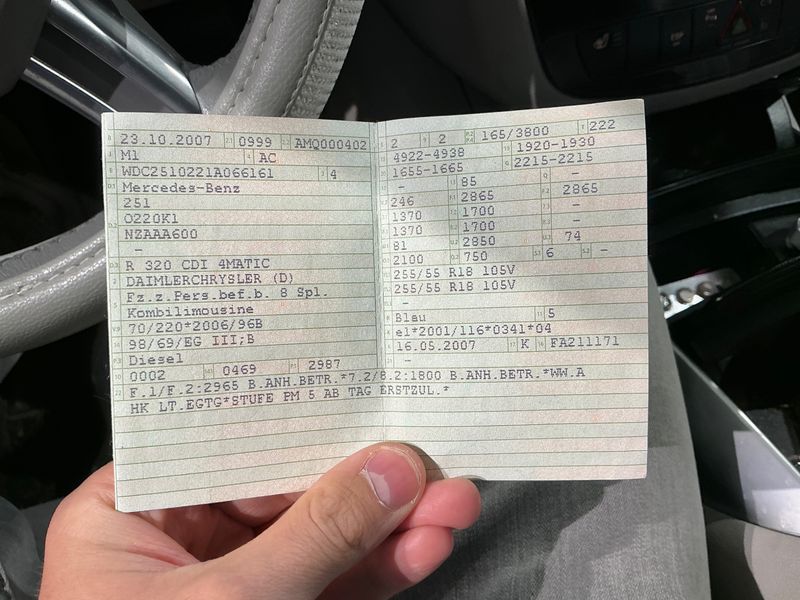 23.10.2007 0999 AMQ000402
M1 AC
WDC2510221A066161 4
Mercedes-Benz
251
O220K1
NZAAA600
-
R 320 CDI 4MATIC
DAIMLERCHRYSLER (D)
Fz.z.Pers.bef.b. 8 Spl.
Kombilimousine
70/220*2006/96B
98/69/EG III;B
Diesel
0002 0469 2987
2 2 165/3800 222
4922-4938 1920-1930
1655-1665 2215-2215
- 85 -
246 2865 2865
1370 1700 -
1370 1700 -
81 2850 74
2100 750 6 -
255/55 R18 105V
255/55 R18 105V
-
Blau 5
e1*2001/116*0341*04
16.05.2007 K FA211171
-
F.1/F.2:2965 B.ANH.BETR.*7.2/8.2:1800 B.ANH.BETR.*WW.A
HK LT.EGTG*STUFE PM 5 AB TAG ERSTZUL.*